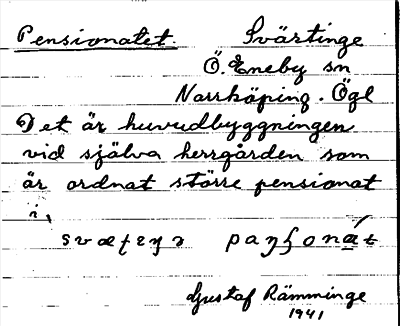 Pensionatet. Svärtinge
Ö. Eneby sn
Norrköping. Ögl
Det är huvudbyggningen
vid själva herrgården som
är ordnat större pensionat
i.
Gustaf Rämminge
1941